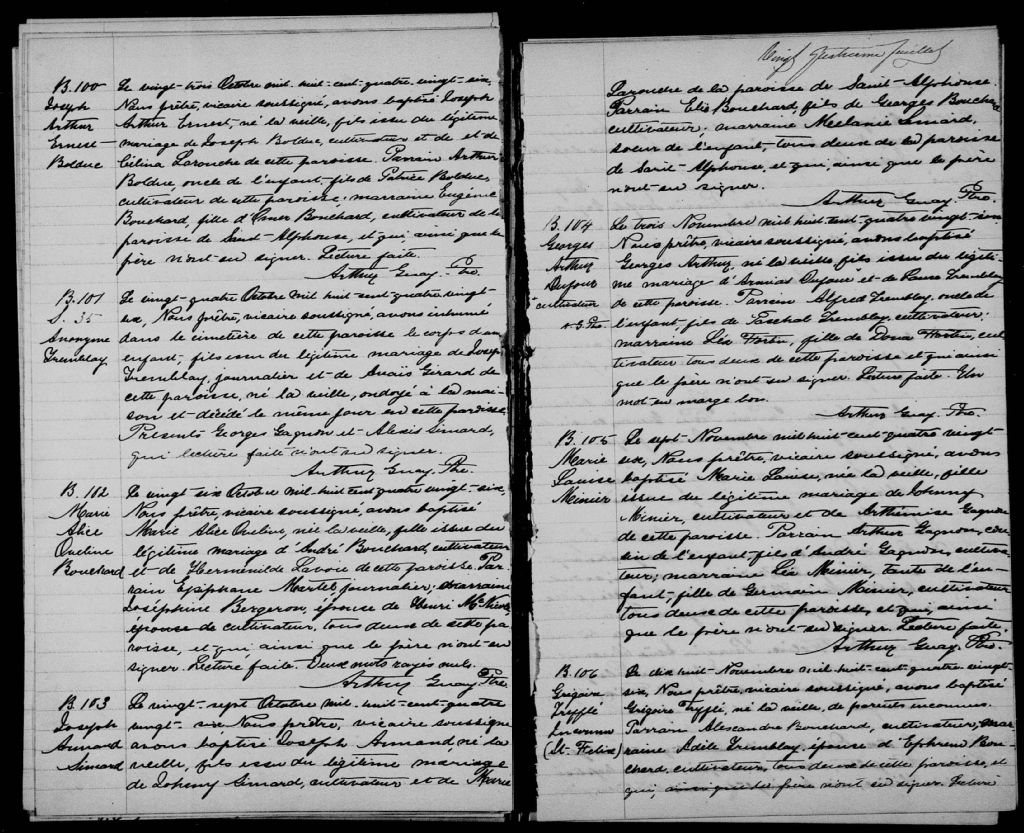 B. 100
Joseph
Arthur
Ernest
Bolduc
Le vingt-trois Octobre mil huit-cent-quatre-vingt-six,
Nous prêtre, vicaire soussigné, avons baptisé Joseph
Arthur Ernest, né la veille, fils issu du légitime
mariage de Joseph Bolduc, cultivateur et de et de
Célina Larouche de cette paroisse. Parrain Arthur
Bolduc, oncle de l'enfant, fils de Patrice Bolduc,
cultivateur de cette paroisse; marraine Eugénie
Bouchard, fille d'Omer Bouchard, cultivateur de la
paroisse de Saint-Alphonse, et qui, ainsi que le
père n'ont su signer. Lecture faite.
Arthur Guay, Ptre.
B. 101
S. 35
Anonyme
Tremblay
Le vingt-quatre Octobre mil huit-cent-quatre-vingt-
six, Nous prêtre, vicaire soussigné, avons inhumé
dans le cimetière de cette paroisse le corps d'un
enfant, fils issu du légitime mariage de Joseph
Tremblay, journalier et de Anaïs Girard de
cette paroisse, né la veille, ondoyé à la mai-
son et décédé le même jour en cette paroisse.
Présents Georges Gagnon et Alexis Simard,
qui lecture faite n'ont su signer.
Arthur Guay, Ptre.
B. 102
Marie
Alice
Oveline
Bouchard
Le vingt-six Octobre mil-huit-cent-quatre-vingt-six,
Nous prêtre, vicaire soussigné, avons baptisé
Marie Alice Oveline, née la veille, fille issue du
légitime mariage d'André Bouchard, cultivateur
et de Herménilde Lavoie de cette paroisse. Par-
rain Epiphane Martel, journalier, marraine
Joséphine Bergeron, épouse de Henri McNicoll
épouse de cultivateur, tous deux de cette pa-
roisse, et qui, ainsi que le père n'ont su
signer. Lecture faite. Deux mots rayés nuls.
Arthur Guay Ptre
B. 103
Joseph
Armand
Simard
Le vingt-sept Octobre mil-huit-cent-quatre
vingt-six Nous prêtre, vicaire soussigné
avons baptisé Joseph Armand, né la
veille, fils issu du légitime mariage
de Johnny Simard, cultivateur et de Marie
Vingt quatrième feuillet
Larouche de la paroisse de Saint-Alphonse.
Parrain Elie Bouchard, fils de Georges Bouchard
cultivateur; marraine Mélanie Simard,
soeur de l'enfant, tous deux de la paroisse
de Saint-Alphonse, et qui, ainsi que le père
n'ont su signer.
Arthur Guay, Ptre.
B. 104
Georges
Arthur
Dufour
cultivateur
Le trois Novembre mil huit-cent-quatre vingt-six
Nous prêtre, vicaire soussigné, avons baptisé
Georges Arthur, né la veille, fils issu du légiti-
me mariage d' Dufour et de Tremblay
de cette paroisse. Parrain Alfred Tremblay, oncle de
l'enfant, fils de Paschal Tremblay, cultivateur;
marraine Léa Fortin, fille de Fortin, cul-
tivateur tous deux de cette paroisse et qui ainsi
que le père n'ont su signer. Lecture faite. Un
mot en marge bon.
Arthur Guay Ptre.
B. 105
Marie
Louise
Minier
Le sept Novembre mil huit-cent-quatre vingt-
six, Nous prêtre, vicaire soussigné, avons
baptisé Marie Louise, née la veille, fille
issue du légitime mariage de Johnny
Minier, cultivateur et de Arthémise Gagnon
de cette paroisse. Parrain Arthur Gagnon, cou-
sin de l'enfant, fils d'André Gagnon, cultiva-
teur; marraine Léa Minier, tante de l'en-
fant, fille de Germain Minier, cultivateur
tous deux de cette paroisse, et qui, ainsi
que le père n'ont su signer. Lecture faite
Arthur Guay, Ptre.
B. 106
Grégoire
Tryfflé
Inconnu
(St. Félix)
Le dix huit Novembre mil huit-cent-quatre vingt-
six, Nous prêtre, vicaire soussigné, avons baptisé
Grégoire Tryfflé, né la veille, de parents inconnus.
Parrain Alexandre Bouchard, cultivateur, mar-
raine Adèle Tremblay, épouse d'Ephrem Bou-
chard, cultivateur, tous deux de cette paroisse, et
qui, ainsi que le père n'ont su signer. Lecture